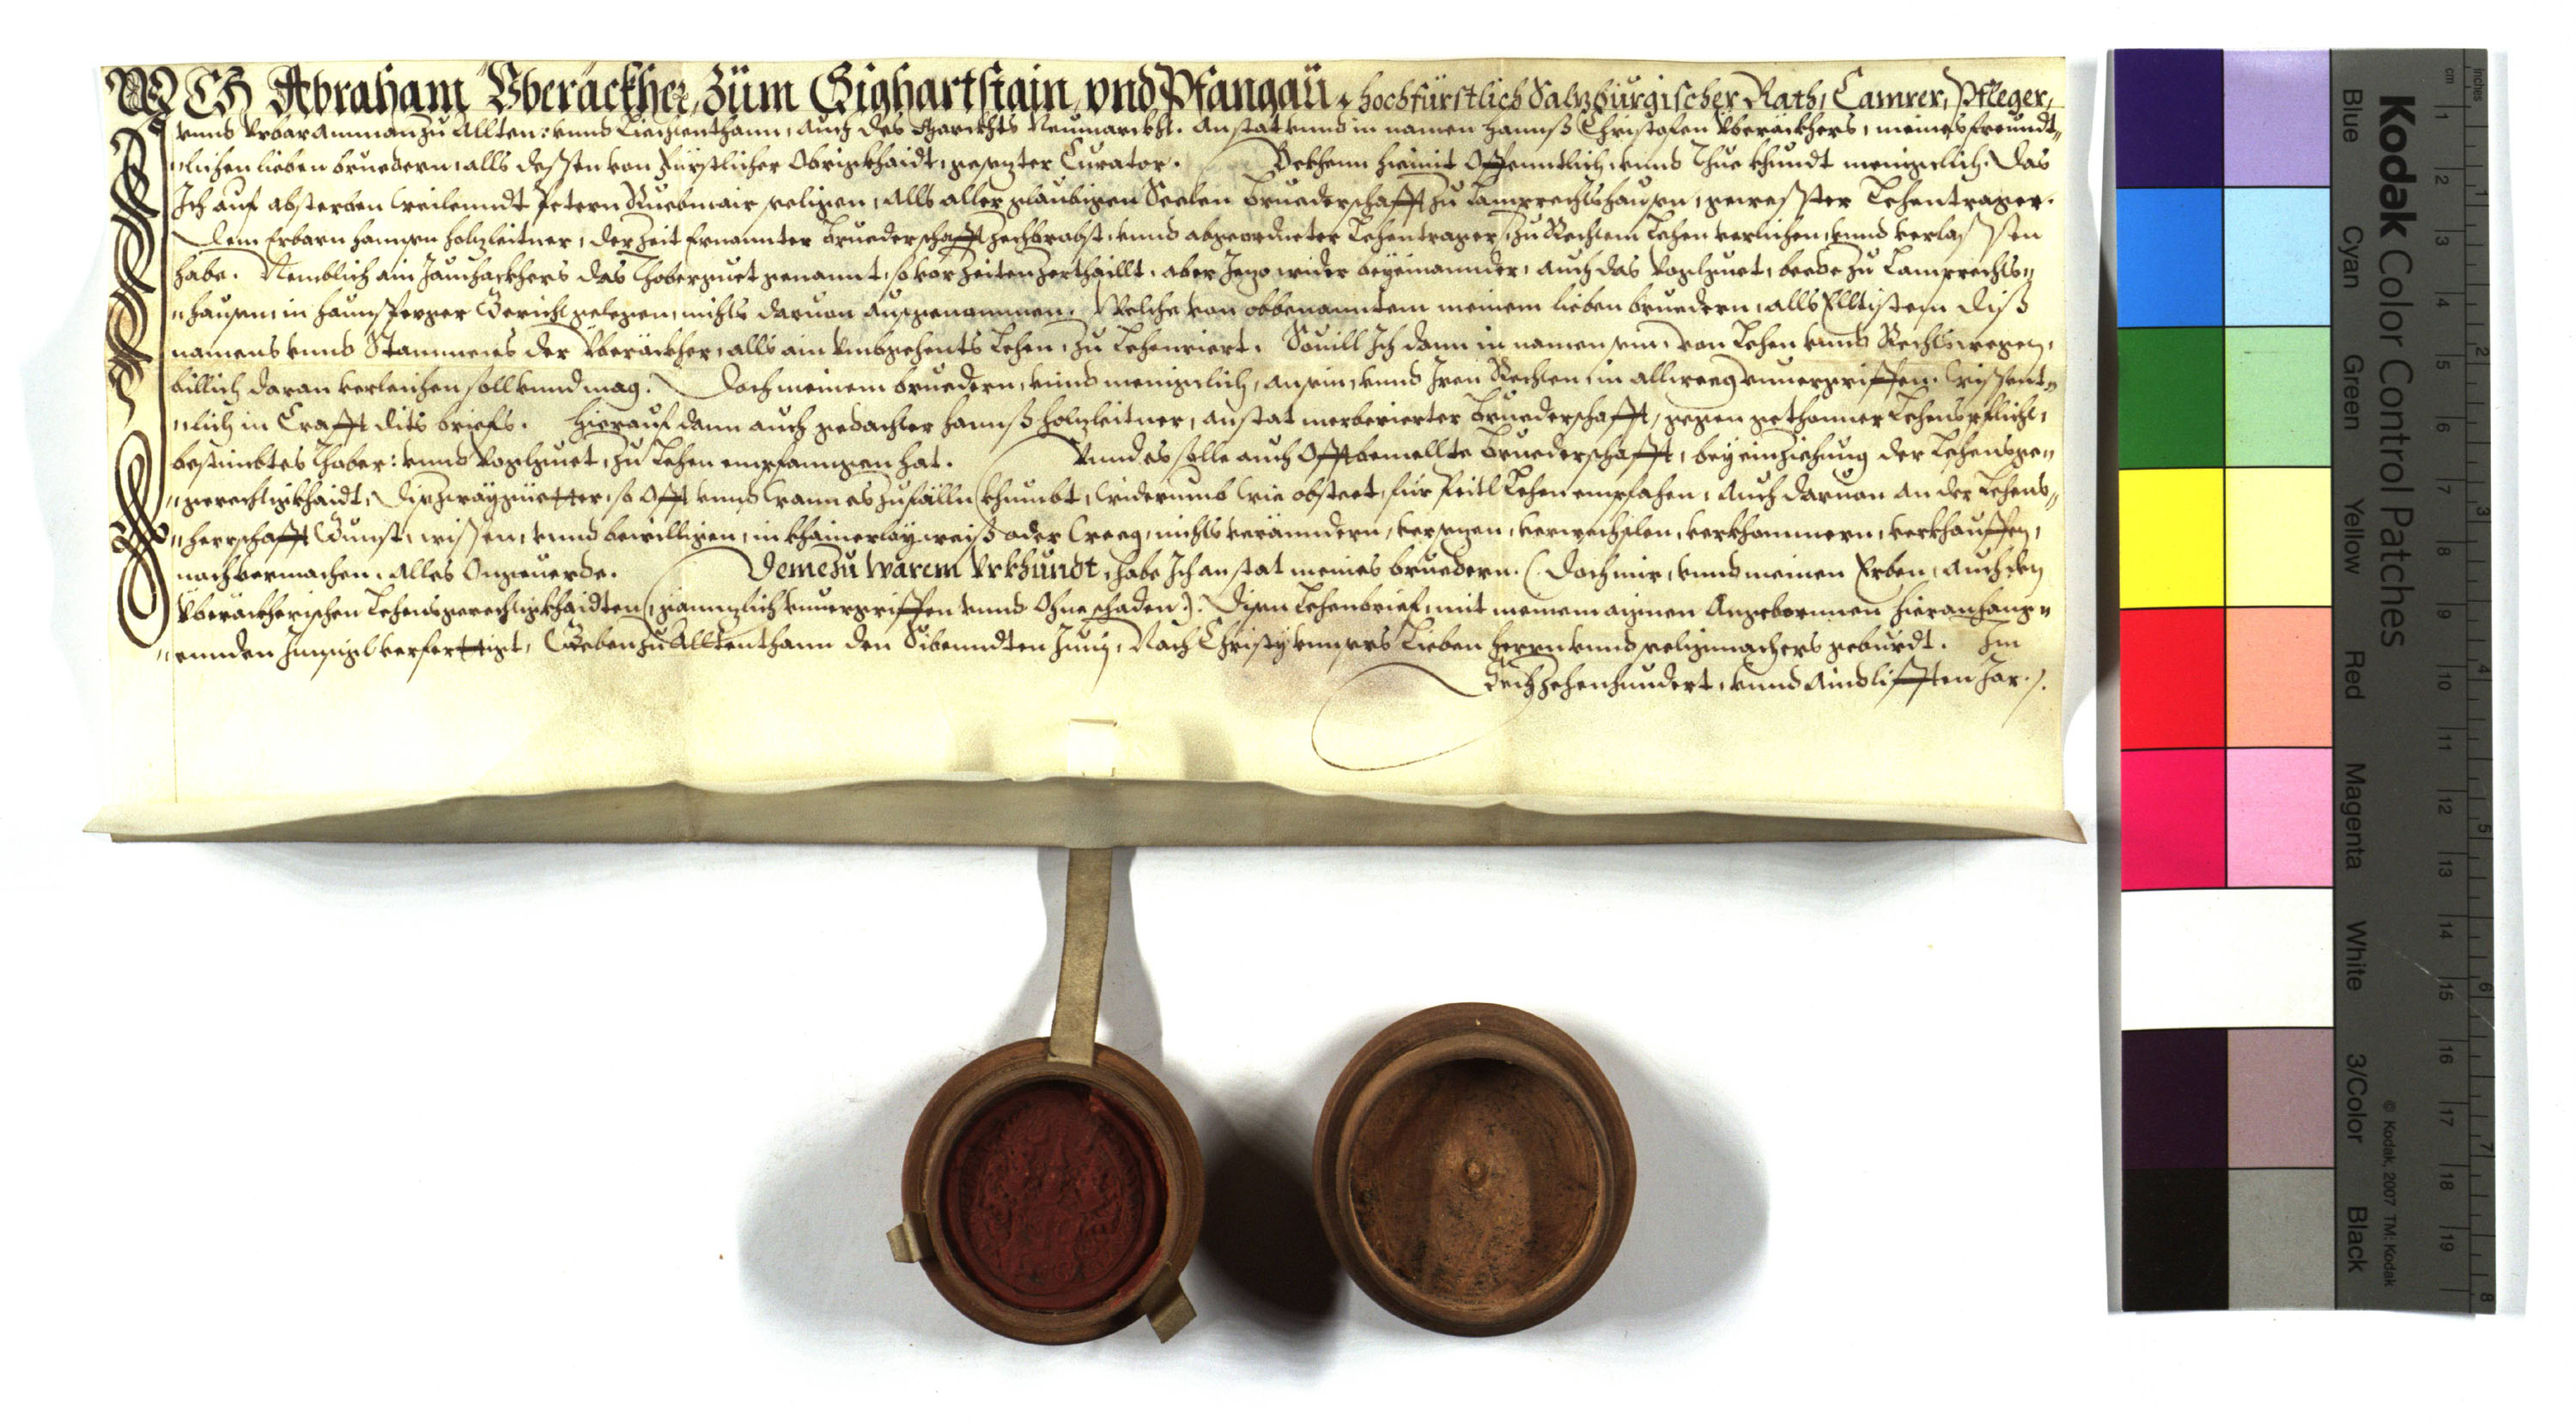 ICH Abraham Vberäckher, züm Sighartstain, vnd Pfangaü, hochfürstlich Salzbürgischer Rath, Camrer, Pfleger,
vnnd Vrbaramman zu Allten: vnnd Liechtenthann, auch des Gerichts Neumarckht. Anstat vnnd in namen Hannß Christofen Vberäckhers, meines freundt-
lichen lieben bruedern, alls dessen von Fürstlicher Obrigkhaidt, gesezter Curator. Bekhenn hiemit Offenntlich, vnnd Thue khundt menigclich. Das
Ich auf absterben Weilenndt Petern Kuebmair seligen, Alls aller glaubigen Seelen Bruederschafft zu Lamprechtshausen, gewester Lehentrager.
Dem Erbarn Hannsen Holzleitner, der Zeit Ernannter Bruederschafft Zechbrobst, vnnd abgeordneter Lehentrager, zu Rechtem Lehen verlichen, vnnd verlassen
habe. Nemblich ain Jauchackhers das Thobergnet genannt, so vor zeiten zerthaillt, aber Jezo wider beyeinannder, auch das Voglguet, beede zu Lamprechts-
hausen, in Haunsperger Gericht gelegen, nichts daruon ausgenommen. Welche von obbenanntem meinem lieben bruedern, alls Elltistem diß
namens vnnd Stammens der Vberäckher, alls ain Vnbgehents Lehen, zu Lehen riert. Souill Ich dann in namen sein, von Lehen vnnd Rechtswegen,
billich daran verleichen soll vnnd mag. Doch meinem bruedern, vnnd menigclich, an sein, vnnd Iren Rechten, in allweeg vnuergriffen. Wissent-
lich in Crafft dits briefs. Hierauf dann auch gedachter Hannß Holzleitner, anstat merberierter Bruederschafft, gegen gethanner Lehenspflicht,
bestimbtes Thober: vnnd Voglguet, zu Lehen empfanngen hat. Vnnd es solle auch Offtbemellte Bruederschafft, bey einziehung der Lehensge-
gerechtigkhaidt, dise zway güetter, so Offt vnnd Wann es zufälln khumbt, Widerumb Wie obsteet, für Peitl Lehen empfahen, Auch daruon an der Lehens-
herrschafft Gunst, wissen, vnnd bewilligen, in khainerlay weiß oder Weeg, nichts veränndern, versezen, verwechslen, verkhommern, verkhauffen,
noch vermachen. Alles Ongeuerde. Deme zu Warem Vrkhundt, habe Ich anstat meines bruedern. (Doch mir, vnnd meinen Erben, auch den
Vberäckherischen Lehensgerechtigkhaidten, gannzlich vnuergriffen vnnd Ohne schaden.) Disen Lehenbrief, mit meinem aignen Angebornnen hieranhang-
ennden Innsigl verferttigt, Geben zu Alltenthann den Sibenndten Junij, Nach Christy vnnsers Lieben Herrn vnnd seligmachers geburdt. Im
Sechzehenhundert, vnnd Aindlifften Jar.
Kodak Color Control Patches
Blue Cyan Green Yellow Red Magenta White 3/Color Black
© Kodak, 2007 TM: Kodak
cm 1 2 3 4 5 6 7 8 9 10 11 12 13 14 15 16 17 18 19
Inches 1 2 3 4 5 6 7 8